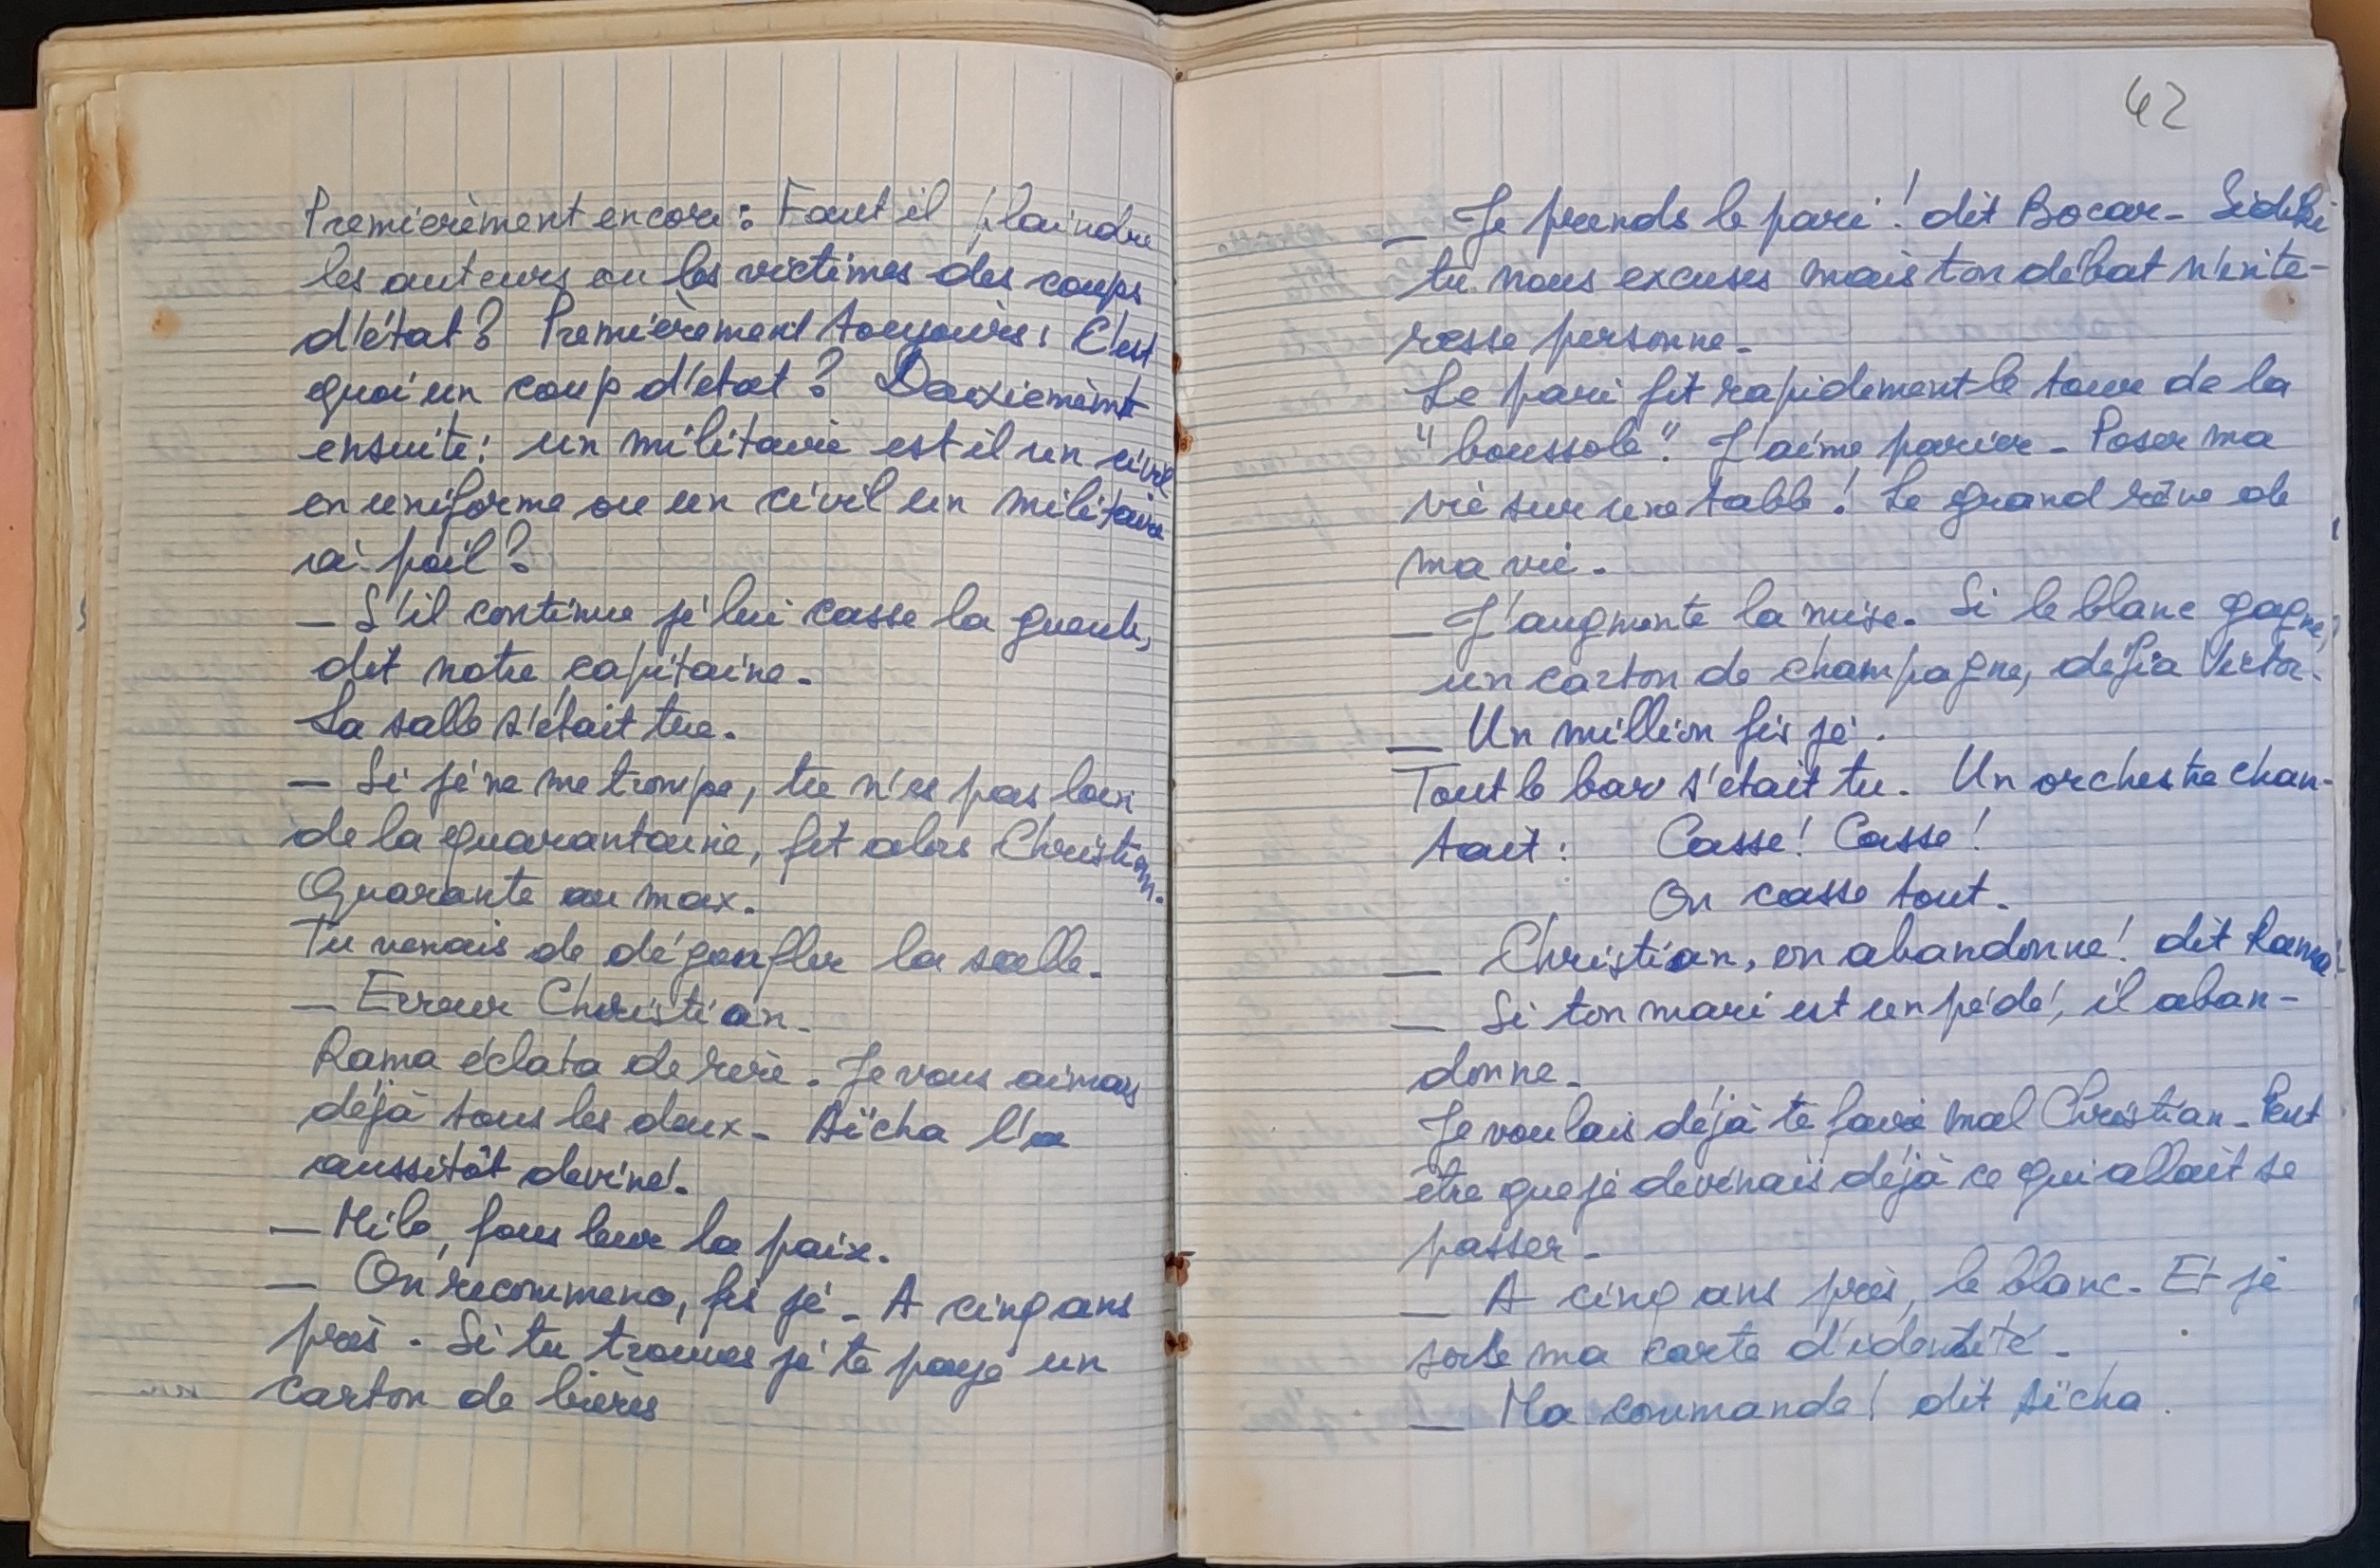 Premierèment encore: Faut il plaindre
les auteurs ou les victimes des coups
d'état? Premièrement toujours: C'est
quoi un coup d'état? Deuxiemèment
ensuite: un militaire est il un civil
en uniforme ou un civil un militaire
à poil?
— S'il continue je lui casse la gueule,
dit notre capitaine.
La salle s'était tue.
— Si je ne me trompe, tu n'es pas loin
de la quarantaine, fit alors Christian.
Quarante au max.
Tu venais de dégonfler la salle.
— Erreur Christian.
Rama éclata de rire. Je vous aimais
déjà tous les deux. Aïcha l'a
aussitôt deviné.
— Milo, fous leur la paix.
— On recommence, fis je. A cinq ans
près. Si tu trouves je te paye un
carton de bières
42
— Je prends le pari! dit Bocar. Sidiki
tu nous excuses mais ton débat n'inté-
resse personne.
Le pari fit rapidement le tour de la
"boussole". J'aime parier. Poser ma
vie sur une table! Le grand rêve de
ma vie.
— J'augmente la mise. Si le blanc gagne,
un carton de champagne, défia Victor.
— Un million fis je.
Tout le bar s'était tu. Un orchestre chan-
tait: Casse! Casse!
On casse tout.
— Christian, on abandonne! dit Rama.
— Si ton mari est un pédé, il aban-
donne.
Je voulais déjà te faire mal Christian. Peut
être que je devinais déjà ce qui allait se
passer.
— A cinq ans près, le blanc. Et je
sors ma carte d'identité.
— Ma commande! dit Aïcha.